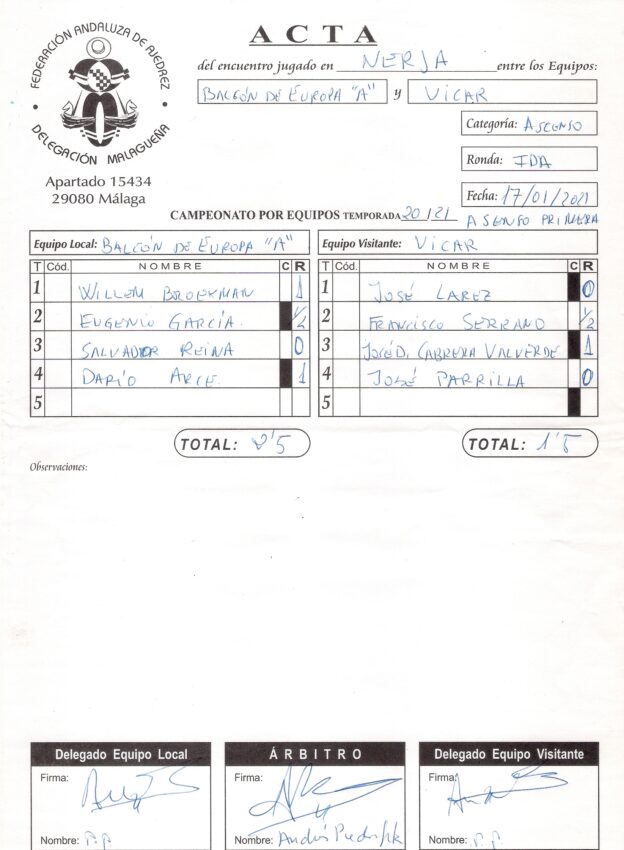 FEDERACIÓN ANDALUZA DE AJEDREZ
DELEGACIÓN MALAGUEÑA
Apartado 15434
29080 Málaga
ACTA
del encuentro jugado en NERJA entre los Equipos:
BALCÓN DE EUROPA "A" y VICAR
Categoría: ASCENSO
Ronda: IDA
Fecha: 17/01/2021
CAMPEONATO POR EQUIPOS TEMPORADA 20/21 ASENSO PRIMERA
Equipo Local: BALCÓN DE EUROPA "A" Equipo Visitante: VICAR
T Cód. NOMBRE C R T Cód. NOMBRE C R
1 WILLEM BROEKMAN 1 1 JOSÉ LAREZ 0
2 EUGENIO GARCÍA. 1/2 2 FRANCISCO SERRANO 1/2
3 SALVADOR REINA 0 3 JOSÉ D. CABRERA VALVERDE 1
4 DARÍO ARCE. 1 4 JOSÉ PARRILLA 0
5 5
TOTAL: 2'5 TOTAL: 1'5
Observaciones:
Delegado Equipo Local ÁRBITRO Delegado Equipo Visitante
Firma: Firma: Firma:
Nombre: P.P Nombre: Andrés Nombre: P.P